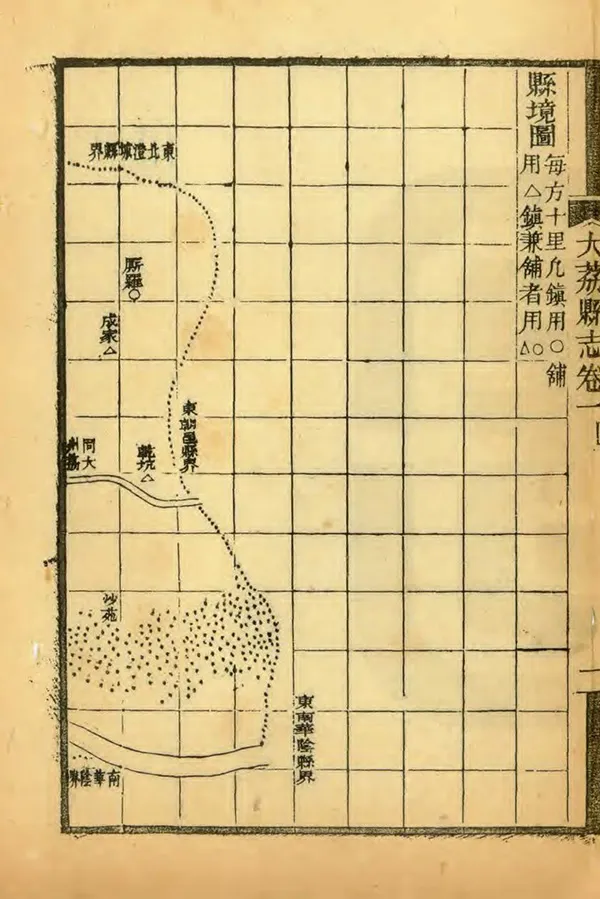 大荔縣志卷一
縣境圖
每方十里凡鎮用○舖
用△鎮兼舖者用△○
東北澄城縣界
羅○
成家△
東朝邑縣界
乾坑△
同州
大荔
沙苑
東南華陰縣界
南華陰界